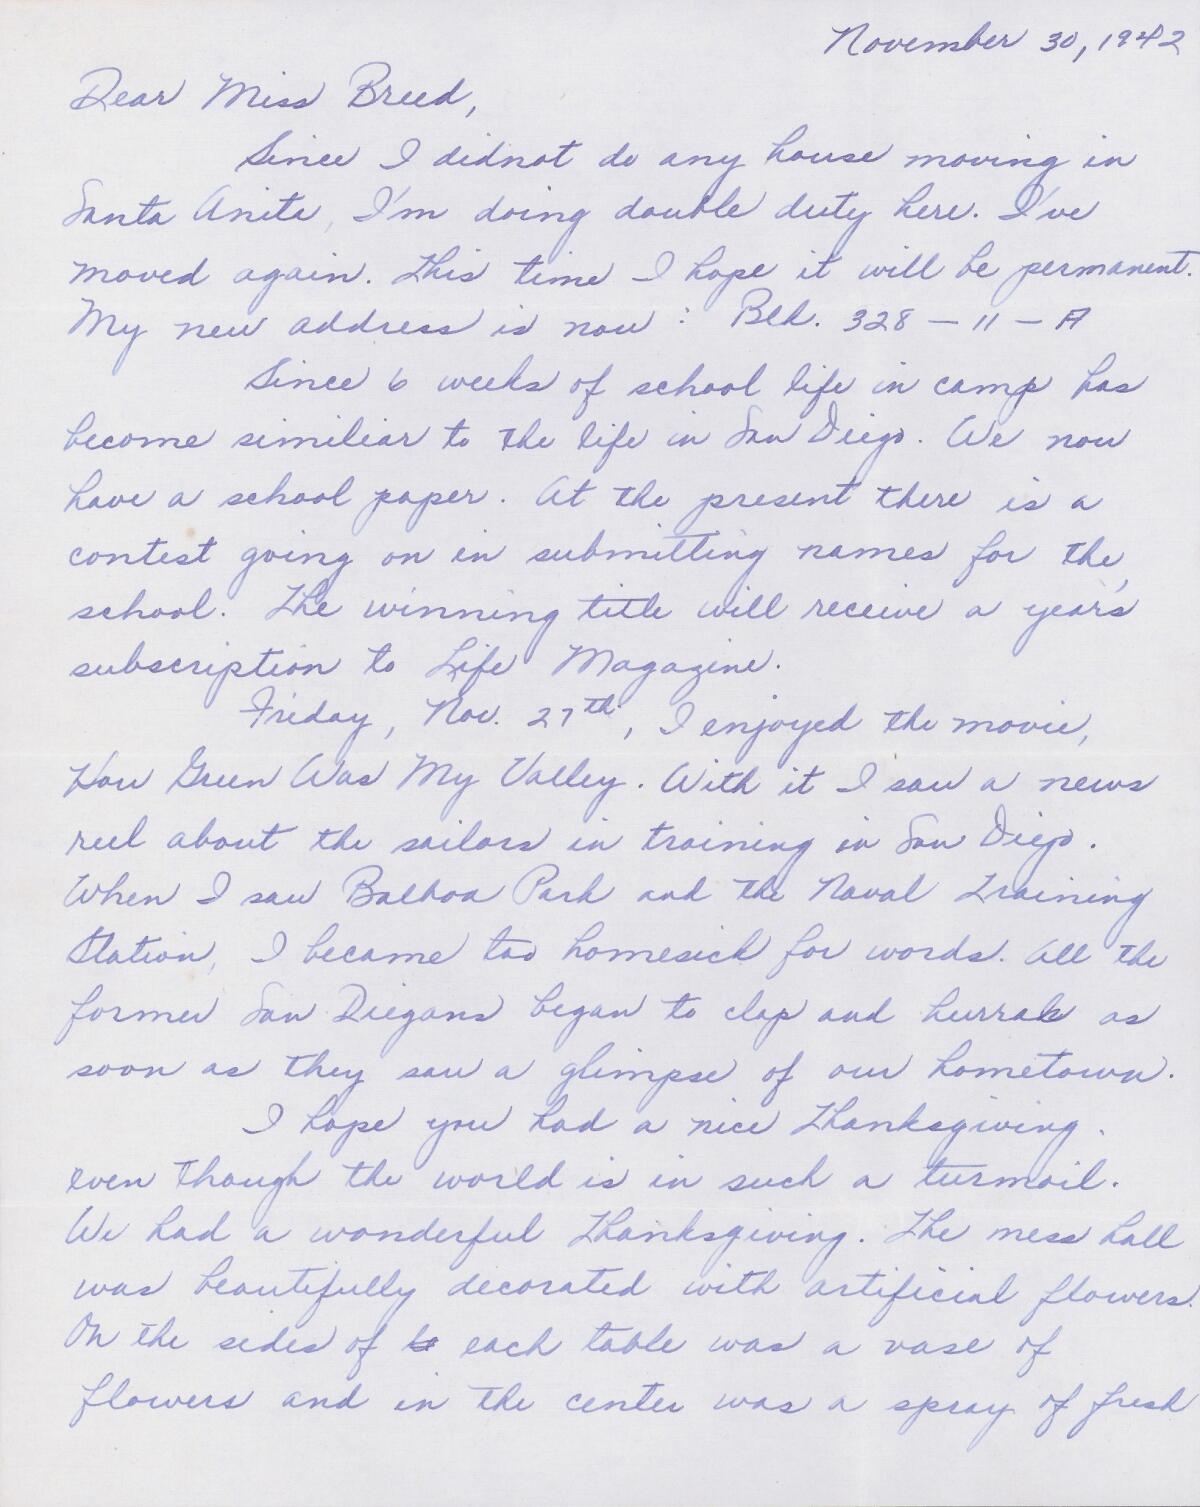 November 30, 1942
Dear Miss Breed,
Since I didnot do any house moving in
Santa Anita, I'm doing double duty here. I've
moved again. This time I hope it will be permanent.
My new address is now : Blk. 328 - 11 - A
Since 6 weeks of school life in camp has
become similiar to the life in San Diego. We now
have a school paper. At the present there is a
contest going on in submitting names for the
school. The winning title will receive a year's
subscription to Life Magazine.
Friday, Nov. 27th, I enjoyed the movie,
How Green Was My Valley. With it I saw a news
reel about the sailors in training in San Diego.
When I saw Balboa Park and the Naval Training
Station, I became too homesick for words. All the
former San Diegans began to clap and hurrah as
soon as they saw a glimpse of our hometown.
I hope you had a nice Thanksgiving.
even though the world is in such a turmoil.
We had a wonderful Thanksgiving. The mess hall
was beautifully decorated with artificial flowers.
On the sides of each table was a vase of
flowers and in the center was a spray of fresh